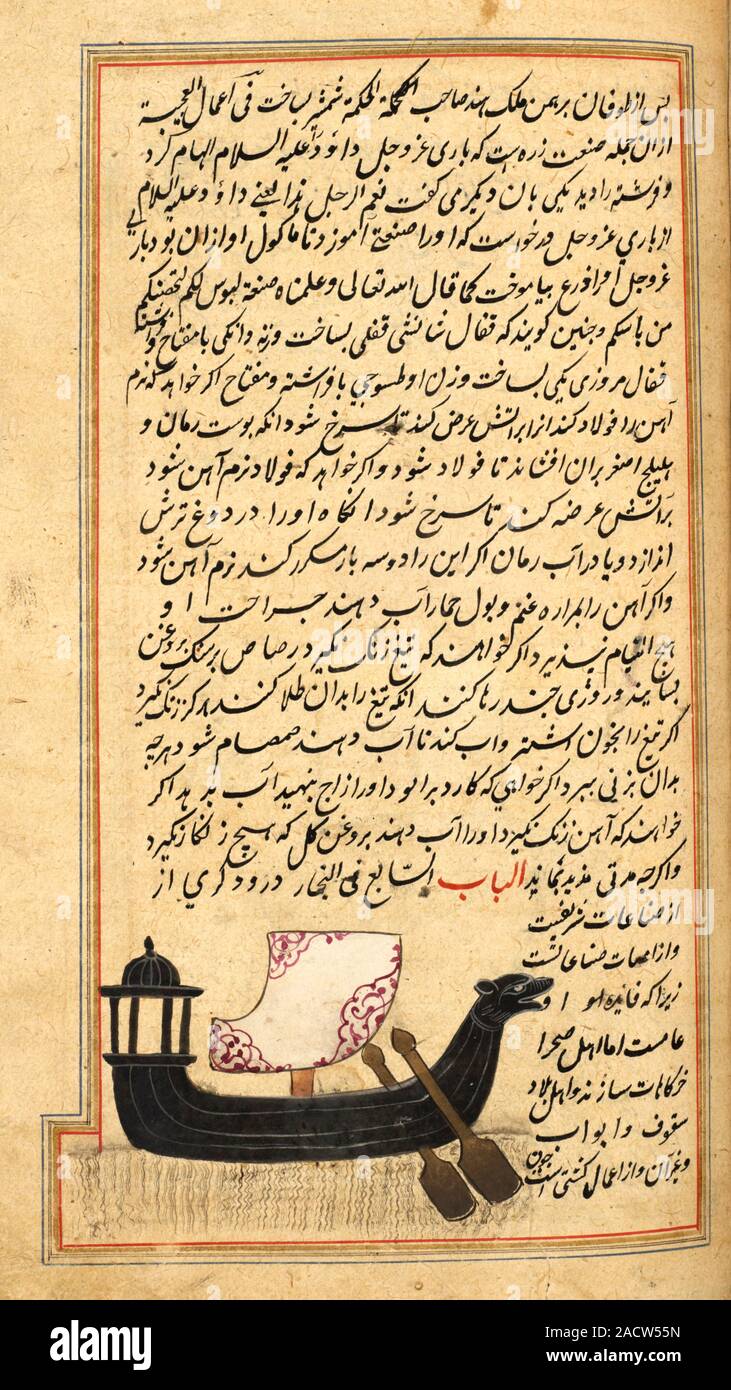 پس از طوفان برهمن ملک هند صاحب الحکمة شمشیر بساخت فی اعمال العجیبة
از آن جمله صنعت زره است که باری عز وجل داؤد علیه السلام الهام کرد
و فرشته را دید یکی بان دیکر می کفت نعم الرجل هذا یعنے داؤد علیه السلام
از باری عز وجل درخواست که او را صنعتے آموزد تا ماکول او از آن بود باری
عز وجل او را ذرع بیاموخت کما قال الله تعالی وعلمناه صنعة لبوس لکم لتحصنکم
من باسکم و چنین کویند که قفال شاشی قفلی بساخت وزنه دانکی با مفتاح و
قفال مروزی یکی بساخت وزن او طسوجی با فراشه و مفتاح اکر خواهد که نرم
آهن را فولاد کند آنرا بر آتش عرض کند تا سرخ شود آنکه پوست رمان و
هلیلج اصفر بران افشاند تا فولاد شود و اکر خواهد که فولاد نرم آهن شود
بر آتش عرضه کند تا سرخ شود انکاه او را در دوغ ترش
اندازد و یا در آب رمان اکر این را دو سه بار مکرر کند نرم آهن شود
و اکر آهن را بمراره غنم و بول حمار آب دهند جراحت او
هیچ التیام نپذیرد اکر خواهند که تیغ زنک نکیرد رصاص بروغن
بسایند و روزی چند رها کنند آنکه تیغ را بدان طلا کنند هرکز زنک نکیرد
اکر تیغ را بخون اشتر و آب کندنا آب دهند صمصام شود هرچه
بدان بزنی ببرد اکر خواهی که کارد او را زاج بنهید آب بدهد اکر
خواهند که آهن زنک نکیرد او را آب دهند بروغن کل که هیچ زنکار نکیرد
و اکرچه مدتی مدید بماند الباب السابع فی النجار درودکری از
از صناعات شریفست
و از امهات صناعاتست
زیرا که فایده او
عامست اما اهل صحرا
خرکاهات سازند و اهل بلاد
سقوف و ابواب
و غیر آن و از اعمال کشتی است چون
alamy
alamy
Image ID: 2ACW55N
www.alamy.com